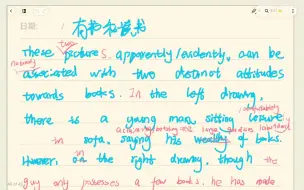 日期: 有书和读书
two
These pictures apparently/evidently, can be
associated with two distinct attitudes
towards books. In the left drawing,
there is a young man sitting leisure
in sofa, saying his wealthy of books.
However, in the right drawing, though the
guy only possesses a few books, he has made